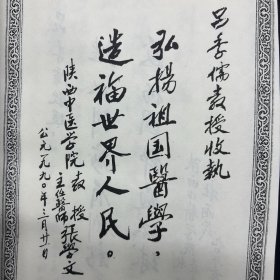 吕季儒教授收执
弘揚祖国醫學，
造福世界人民。
陕西中医学院教授
主任醫師張学文
公元一九九〇年三月廿日